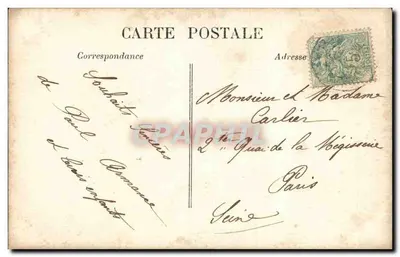 CARTE POSTALE
Correspondance
Adresse
Souhaits sincères
de Paul Armance
et leurs enfants
Monsieur et Madame
Carlier
2 Quai de la Mégisserie
Paris
Seine